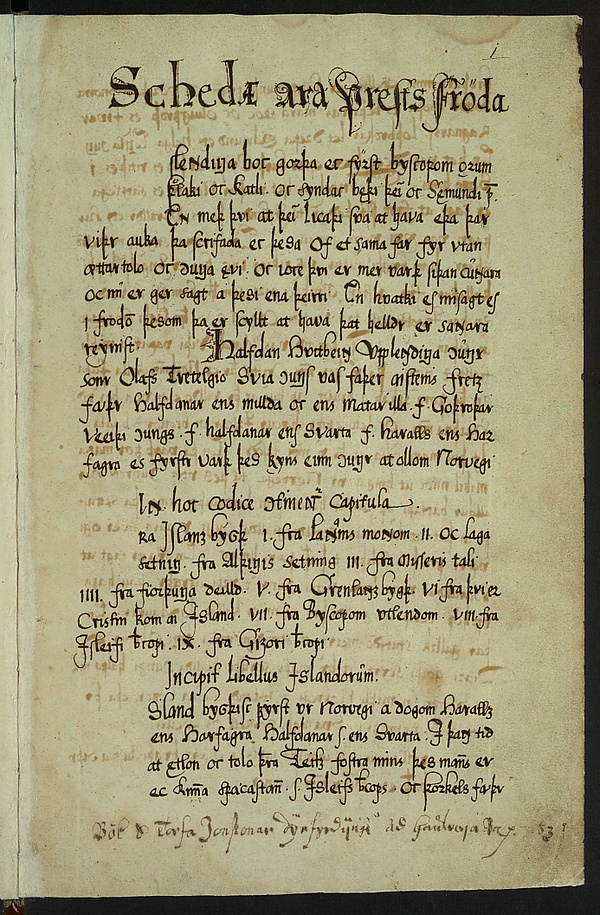 1
Schedæ ara prests fröda
slendiga boc gorþa ec fyrst byscopom orum
þorlaki oc Katli. oc syndac beþi þeī oc Sęmundi p̄.
En meþ þvi at þeī licaþi sva at hava eþa þar
viþr auka þa scrifaþa ec þesa of et sama far fyr utan
ættartolo oc conunga ęvi. oc iocc þvi er mer varþ siþan cunnara
oc nu er ger sagt a þesi enn þeirri. En hvatki es misagt es
i frodō þesom þa er scyllt at hava þat helldr er sannara
reynist. Halfdan Hvitbein Upplendinga Cunungr
sonr Olafs Tretelgio Svia Cunungs vas faþer Austeins frets
faþur Halfdanar ens millda oc ens matar illa. f. Goþroþar
Veiþi Cunungs. f. halfdanar ens Svarta f. Haralls ens Har
fagra es fyrstr varþ þes kyns einn Cunungr at ollom Norvegi
In. hoc codice continentur Capitula
Fra Islanz bygþ I. fra Landnams monnom. II. Oc laga
setning. fra Alþingis setning III. fra Misseris tali
IIII. fra fiorþunga deilld. V. fra Grenlanz bygþ. VI fra þvi er
Cristni kom a Island. VII. fra Byscopom utlendom. VIII. fra
Isleifi b̄copi. IX. fra Gizori b̄copi
Incipit Libellus Islandorum.
Sland bygþisc fyrst ur Norvegi a dogom Haralls
ens Harfagra Halfdanar s. ens Svarta. I þann tid
at etlon oc tolo þra Teitz fostra mins þes mans er
ec kunna spacastan. s. Isleifs b̄cops. Oc þorkels faþur
Bök S Torfa Jonssonar